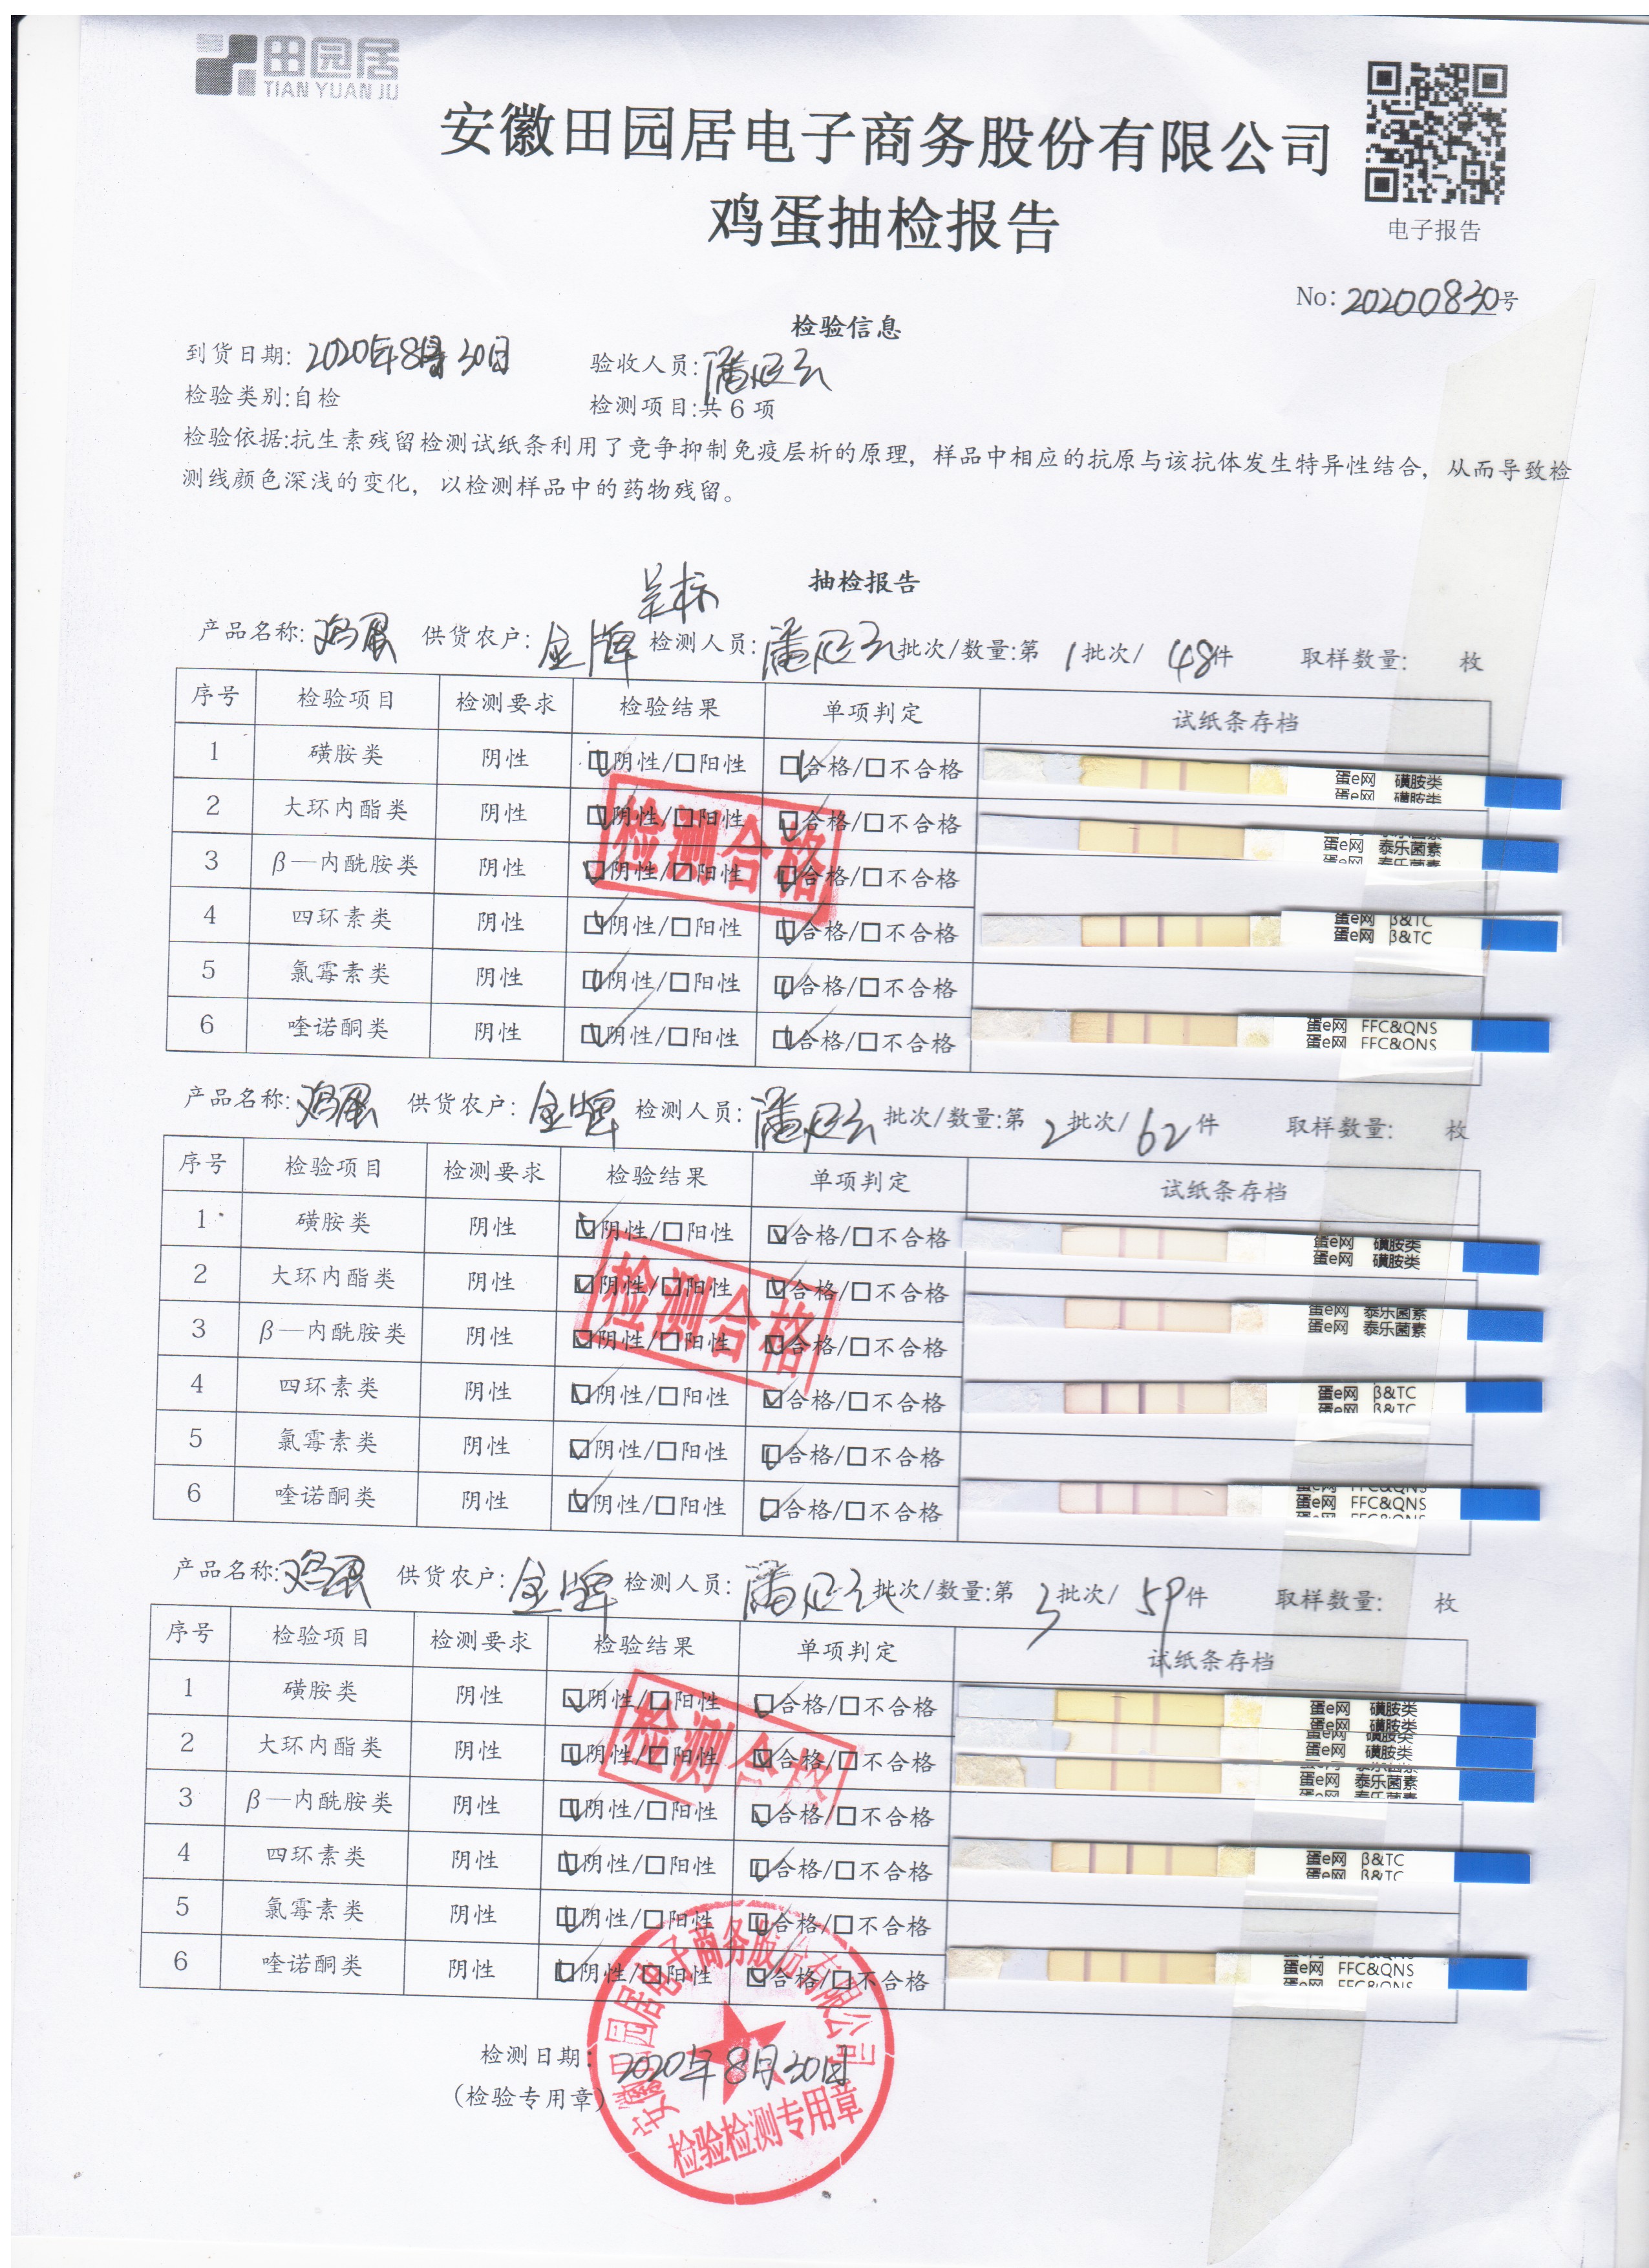 田园居
TIAN YUAN JU
安徽田园居电子商务股份有限公司
鸡蛋抽检报告
电子报告
No: 20200830号
检验信息
到货日期: 2020年8月30日 验收人员: 潘
检验类别:自检 检测项目:共 6 项
检验依据:抗生素残留检测试纸条利用了竞争抑制免疫层析的原理，样品中相应的抗原与该抗体发生特异性结合，从而导致检
测线颜色深浅的变化，以检测样品中的药物残留。
抽检报告
产品名称: 鸡蛋 供货农户: 金牌 检测人员: 潘 批次/数量:第 1 批次/ 48 件 取样数量: 枚
序号 检验项目 检测要求 检验结果 单项判定 试纸条存档
1 磺胺类 阴性 ☑阴性/□阳性 ☑合格/□不合格 蛋e网 磺胺类
蛋e网 磺胺类
2 大环内酯类 阴性 ☑阴性/□阳性 ☑合格/□不合格 蛋e网 泰乐菌素
蛋e网 泰乐菌素
3 β—内酰胺类 阴性 ☑阴性/□阳性 ☑合格/□不合格
检测合格
4 四环素类 阴性 ☑阴性/□阳性 ☑合格/□不合格 蛋e网 β&TC
蛋e网 β&TC
5 氯霉素类 阴性 ☑阴性/□阳性 ☑合格/□不合格
6 喹诺酮类 阴性 ☑阴性/□阳性 ☑合格/□不合格 蛋e网 FFC&QNS
蛋e网 FFC&QNS
产品名称: 鸡蛋 供货农户: 金牌 检测人员: 潘 批次/数量:第 2 批次/ 62 件 取样数量: 枚
序号 检验项目 检测要求 检验结果 单项判定 试纸条存档
1 磺胺类 阴性 ☑阴性/□阳性 ☑合格/□不合格 蛋e网 磺胺类
蛋e网 磺胺类
2 大环内酯类 阴性 ☑阴性/□阳性 ☑合格/□不合格 蛋e网 泰乐菌素
蛋e网 泰乐菌素
3 β—内酰胺类 阴性 ☑阴性/□阳性 ☑合格/□不合格
检测合格
4 四环素类 阴性 ☑阴性/□阳性 ☑合格/□不合格 蛋e网 β&TC
蛋e网 β&TC
5 氯霉素类 阴性 ☑阴性/□阳性 ☑合格/□不合格
6 喹诺酮类 阴性 ☑阴性/□阳性 ☑合格/□不合格 蛋e网 FFC&QNS
产品名称: 鸡蛋 供货农户: 金牌 检测人员: 潘 批次/数量:第 3 批次/ 59 件 取样数量: 枚
序号 检验项目 检测要求 检验结果 单项判定 试纸条存档
1 磺胺类 阴性 ☑阴性/□阳性 ☑合格/□不合格 蛋e网 磺胺类
蛋e网 磺胺类
2 大环内酯类 阴性 ☑阴性/□阳性 ☑合格/□不合格 蛋e网 磺胺类
蛋e网 泰乐菌素
3 β—内酰胺类 阴性 ☑阴性/□阳性 ☑合格/□不合格
检测合格
4 四环素类 阴性 ☑阴性/□阳性 ☑合格/□不合格 蛋e网 β&TC
蛋e网 β&TC
5 氯霉素类 阴性 ☑阴性/□阳性 ☑合格/□不合格
6 喹诺酮类 阴性 ☑阴性/□阳性 ☑合格/□不合格 蛋e网 FFC&QNS
检测日期: 2020年8月30日
(检验专用章)
安徽田园居电子商务股份有限公司
检验检测专用章